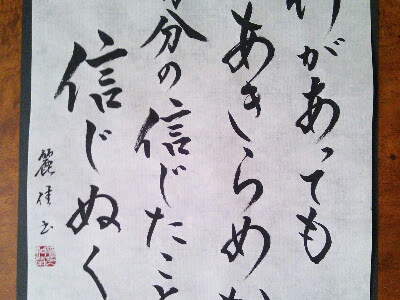 何があっても
あきらめな
自分の信じたこと
信じぬく
麗佳書